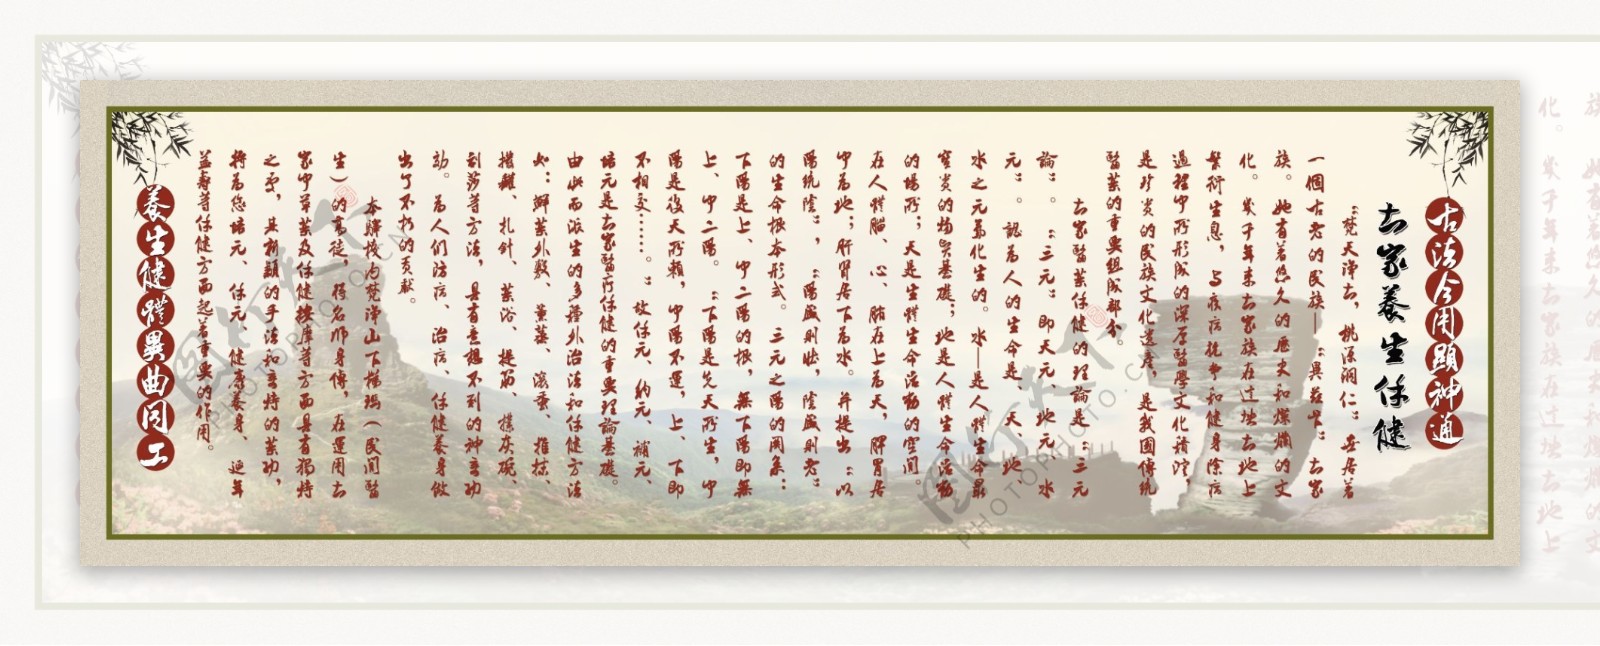 古法今用顯神通
土家養生保健
“梵天淨土，桃源洞仁”在居著
一個古老的民族——“畢茲卡”土家
族。她有著悠久的歷史和燦爛的文
化。幾千年來土家族在這塊土地上
繁衍生息，與疾病抗爭和健身除病
過程中所形成的深厚醫學文化積澱，
是珍貴的民族文化遺產，是我國傳統
醫藥的重要組成部分。
土家醫藥保健的理論是“三元
論”。“三元”即天元、地元、水
元”。認為人的生命是“天、地、
水之元氣化生的。水——是人體生命最
寶貴的物質基礎；地是人體生命活動
的場所；天是生體生命活動的空間。
在人體腦、心、肺在上為天，脾胃居
中為地；肝腎居下為水。并提出“以
陽統陰”，“陽盛則壯，陰盛則老”
的生命根本形式。三元之陽的關系：
下陽是上、中二陽的根，無下陽即無
上、中二陽。“下陽是先天所生，中
陽是後天所賴，中陽不運，上、下即
不相交……。”故保元、納元、補元、
培元是土家醫療保健的重要理論基礎。
由此而派生的多種外治法和保健方法
如：藥外敷、薰蒸、滾蛋、推抹、
撮罐、扎針、藥浴、提筋、撲灰碗、
刮莎等方法，具有意想不到的神奇功
效。為人們防病、治病、保健養身做
出了不朽的貢獻。
本技為梵淨山下楊瑪（民間醫
生）的高徒，經名師身傳，在運用土
家中草藥及保健按摩等方面具有獨特
之處，其新穎的手法和奇特的藥功，
將為您培元、保元、健康養身、延年
益壽等保健方面起著重要的作用。
養生健體異曲同工